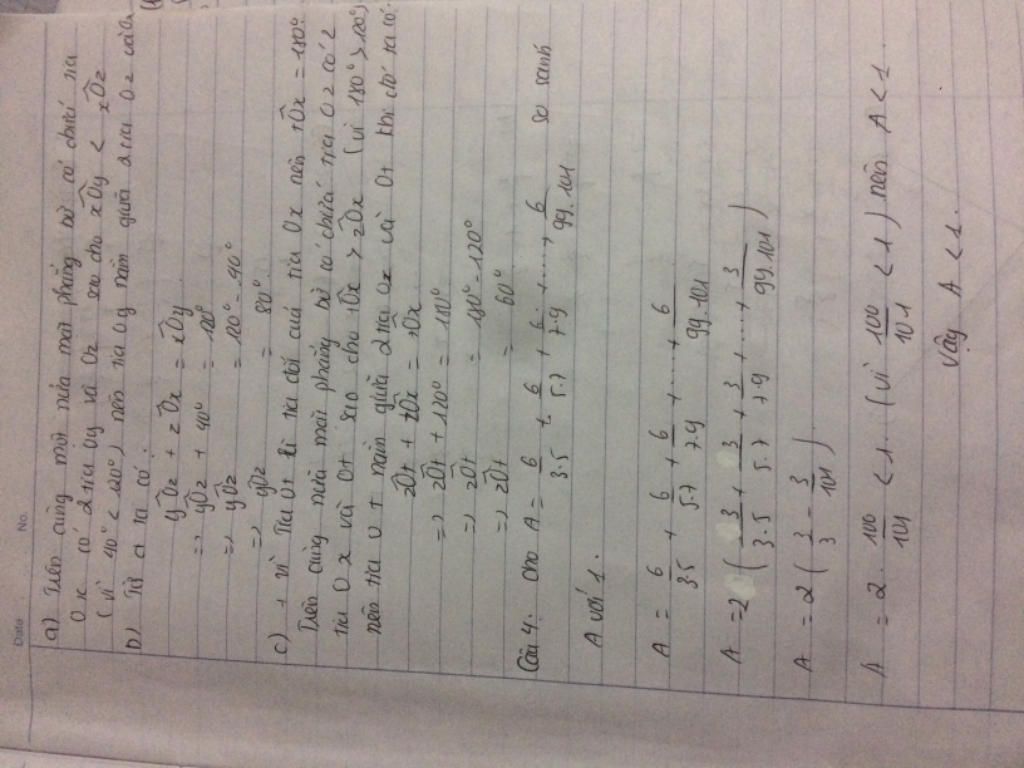 Date No.
a) Trên cùng một nửa mặt phẳng bờ có chứa tia
Ox có 2 tia Oy và Oz sao cho xÔy < xÔz
(vì 40° < 120°) nên tia Oy nằm giữa 2 tia Oz
b) Từ a ta có:
yÔz + zÔx = xÔy
=> yÔz + 40° = 120°
=> yÔz = 120° - 40°
=> yÔz = 80°
c) + vì tia Ot là tia đối của tia Ox nên tÔx = 180°
Trên cùng nửa mặt phẳng bờ có chứa tia Oz có 2
tia Ox và Ot sao cho tÔx > zÔx (vì 180° > 120°)
nên tia nằm giữa 2 tia Ox và Ot khi đó ta có:
zÔt + zÔx = tÔx
=> zÔt + 120° = 180°
=> zÔt = 180° - 120°
=> zÔt = 60°
Câu 4: Cho A = 6/3.5 + 6/5.7 + 6/7.9 + ..... + 6/99.101 so sánh
A với 1.
A = 6/3.5 + 6/5.7 + 6/7.9 + ..... + 6/99.101
A = 2(3/3.5 + 3/5.7 + 3/7.9 + ..... + 3/99.101)
A = 2(3/3 - 3/101)
A = 2. 100/101 < 1. (vì 100/101 < 1) nên A < 1.
Vậy A < 1.